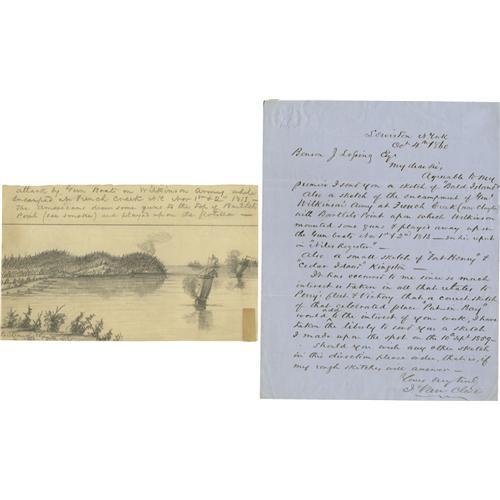 attack by Gun Boats on Wilkinsons Army while
encamped at French Creek N.Y. Nov 1st & 2d 1813 —
The Americans drew some guns to the top of Bartletts
Point (see smoke) and played upon the flotilla —
Lewiston N York
Oct 4th 1860
Benson J Lossing Esq
My dear Sir,
Agreeable to my
promise I send you a sketch of Bald Island
Also a sketch of the encampment of Genl
Wilkinsons Army at French Creek (now Clayton
with Bartletts Point upon which Wilkinson
mounted some guns & played away upon
the Gun Boats Nov 1st & 2d 1813 — and is upon
in "Niles Register" —
Also a small sketch of "Fort Henry" &
"Cedar Island" Kingston —
It has occurred to me since so much
interest is taken in all that relates to
Perrys fleet & Victory that a correct sketch
of that celebrated place Put in Bay
would add to the interest of your work, I have
taken the liberty to send you a sketch
I made upon the spot on the 10th Sept 1859 —
Should you wish any other sketch
in this direction please order, that is, if
my rough sketches will answer —
Yours very truly